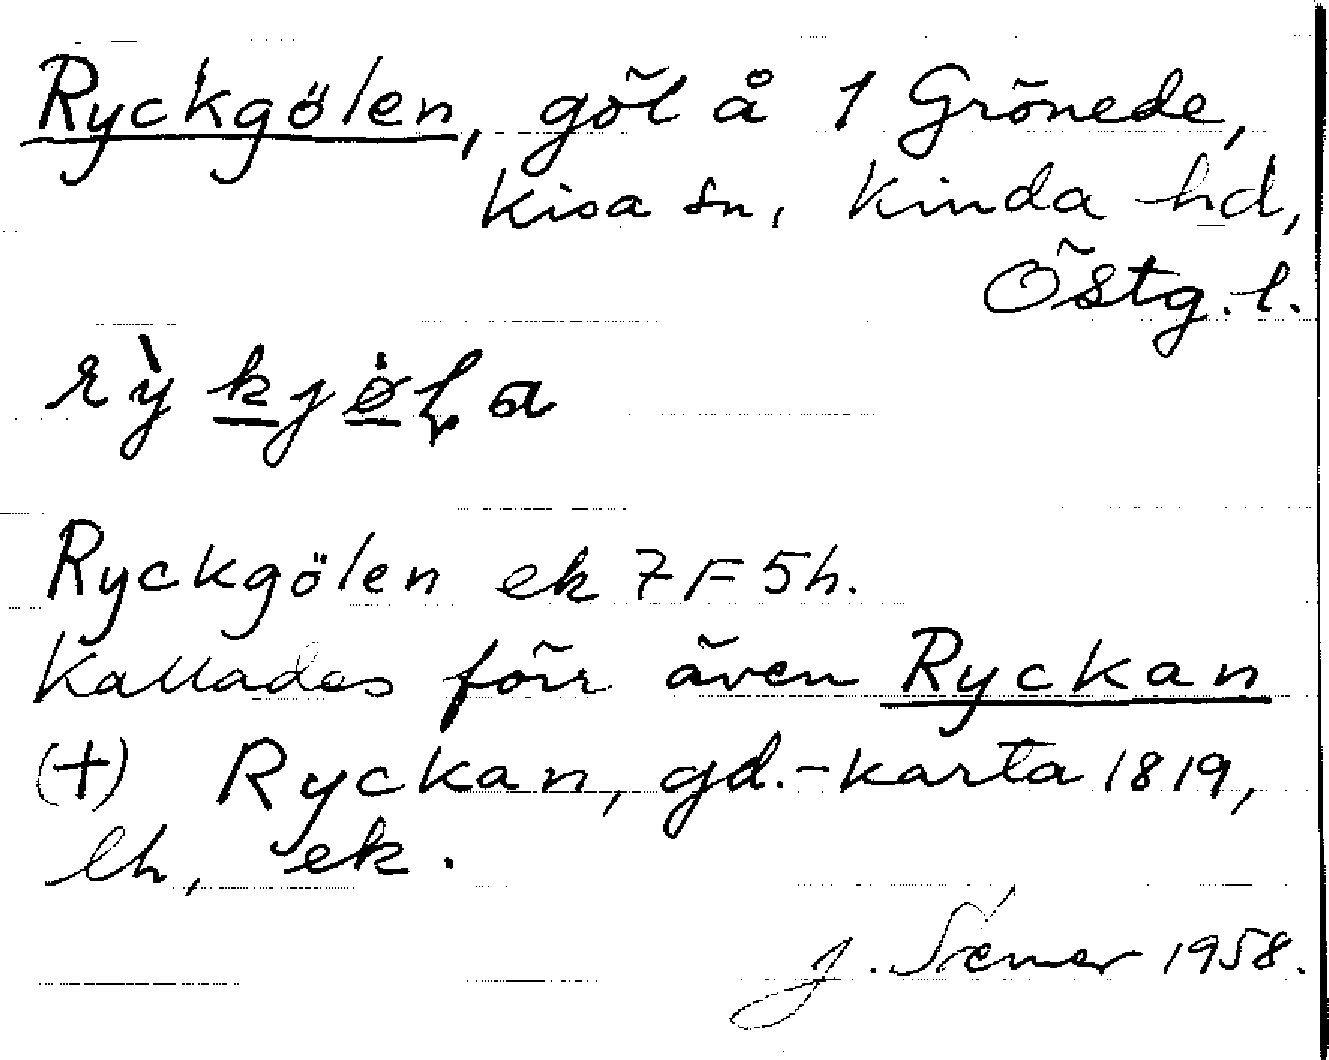 Ryckgölen, göl å 1 Grönede,
Kisa sn, Kinda hd,
Östg. l.
Ryckgölen ek 7F5h.
Kallades förr även Ryckan
(+) Ryckan, gd.-karta 1819,
lh, ek.
J. 1958.